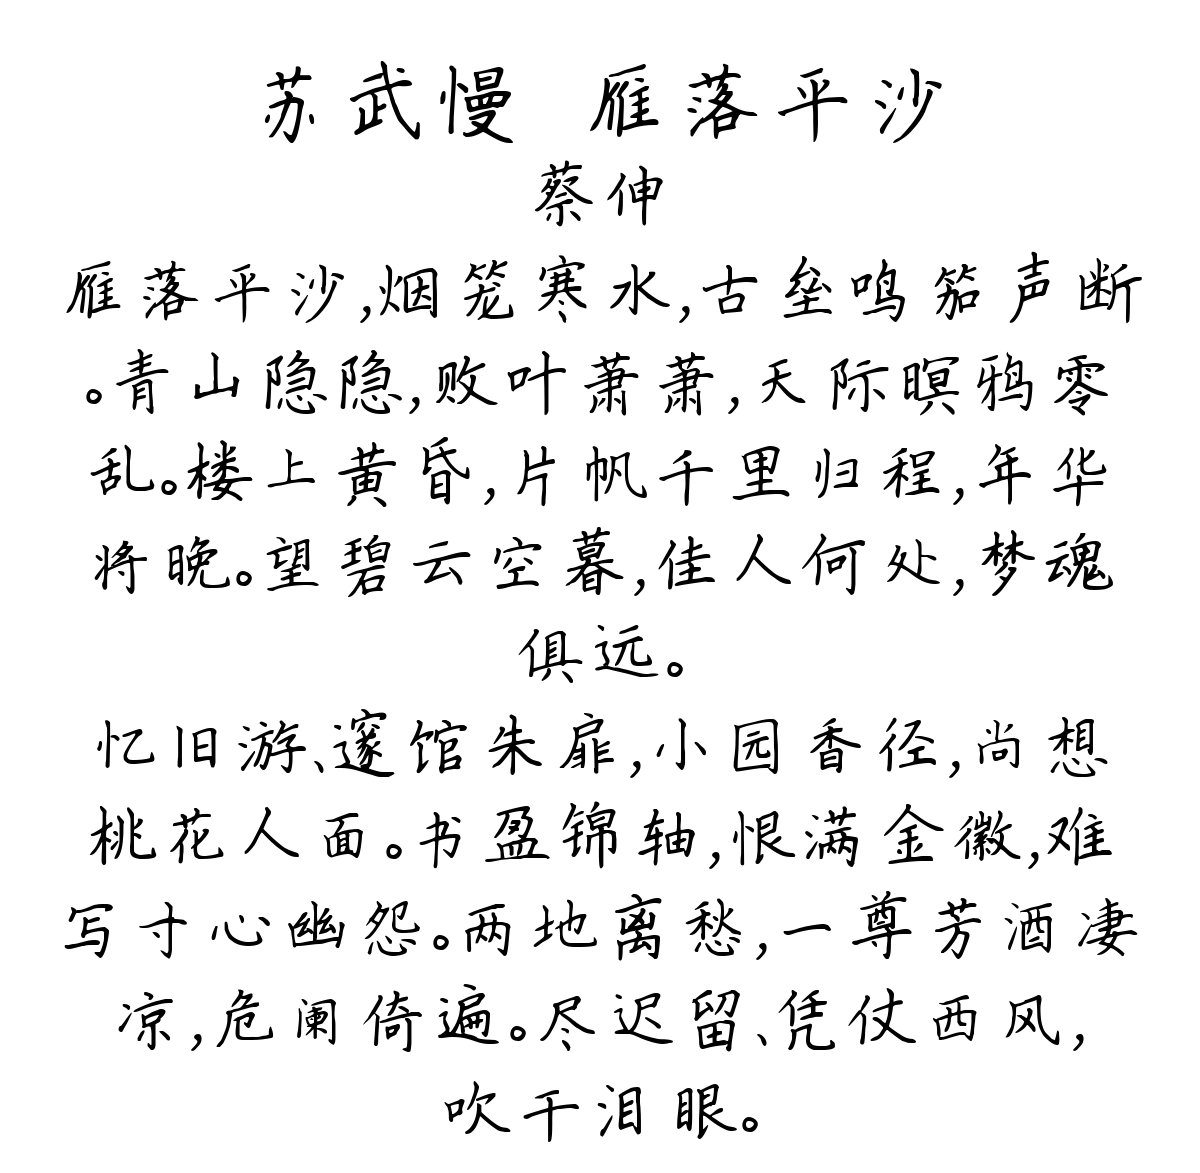 苏武慢 雁落平沙
蔡伸
雁落平沙,烟笼寒水,古垒鸣笳声断
。青山隐隐,败叶萧萧,天际暝鸦零
乱。楼上黄昏,片帆千里归程,年华
将晚。望碧云空暮,佳人何处,梦魂
俱远。
忆旧游、邃馆朱扉,小园香径,尚想
桃花人面。书盈锦轴,恨满金徽,难
写寸心幽怨。两地离愁,一尊芳酒凄
凉,危阑倚遍。尽迟留、凭仗西风,
吹干泪眼。